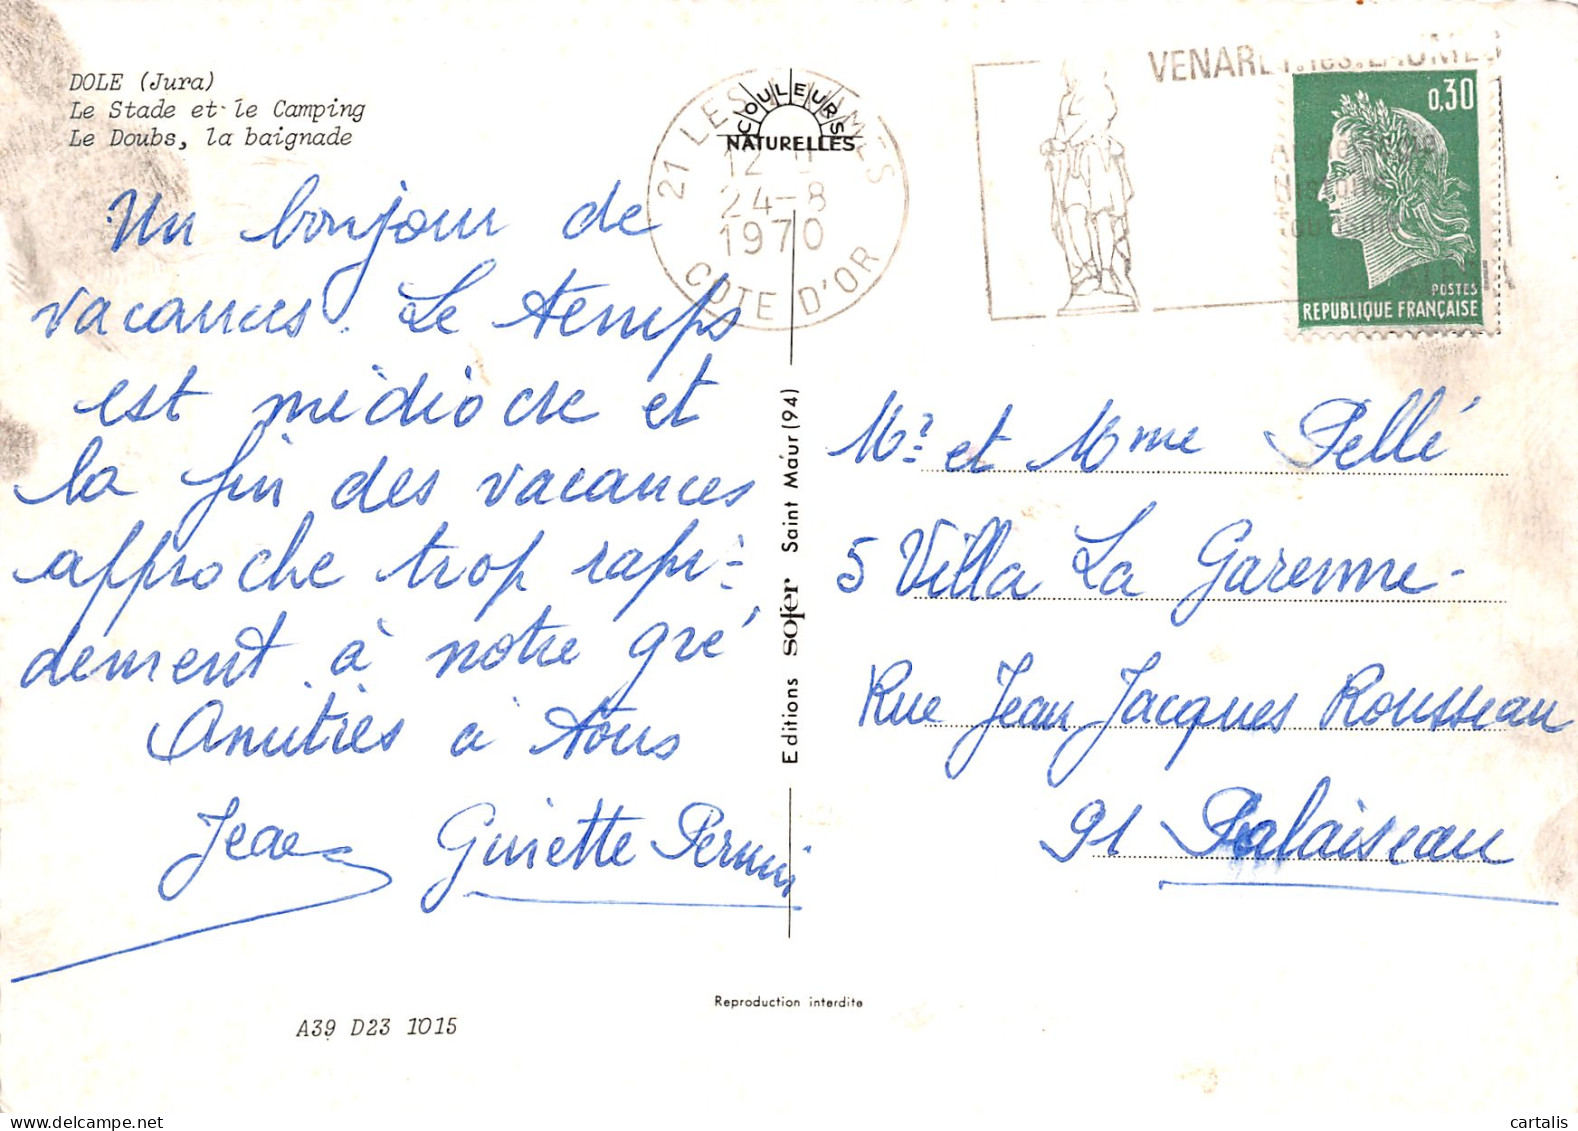 DOLE (Jura)
Le Stade et le Camping
Le Doubs, la baignade
COULEURS
NATURELLES
21 LES LAUMES
24-8
1970
COTE D'OR
VENAREY-les-LAUMES
0,30
POSTES
REPUBLIQUE FRANÇAISE
Un bonjour de
vacances. Le temps
est médiocre et
la fin des vacances
approche trop rapi-
dement à notre gré
Amitiés à tous
Jean Guiette
Editions sofer Saint Maur (94)
Mr et Mme Pellé
5 Villa La Garenne-
Rue Jean Jacques Rousseau
91 Palaiseau
Reproduction interdite
A39 D23 1015
cartalis